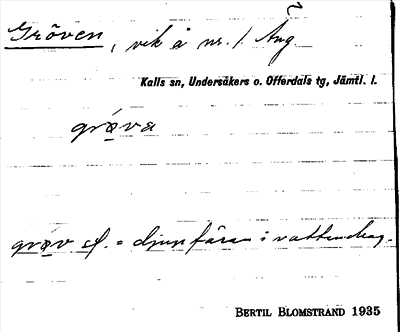 Gröven, vik å nr. 1. Äng
Kalls sn, Undersåkers o. Offerdals tg, Jämtl. l.
grøva
grøv sf. = djup fåra i vattendrag.
BERTIL BLOMSTRAND 1935